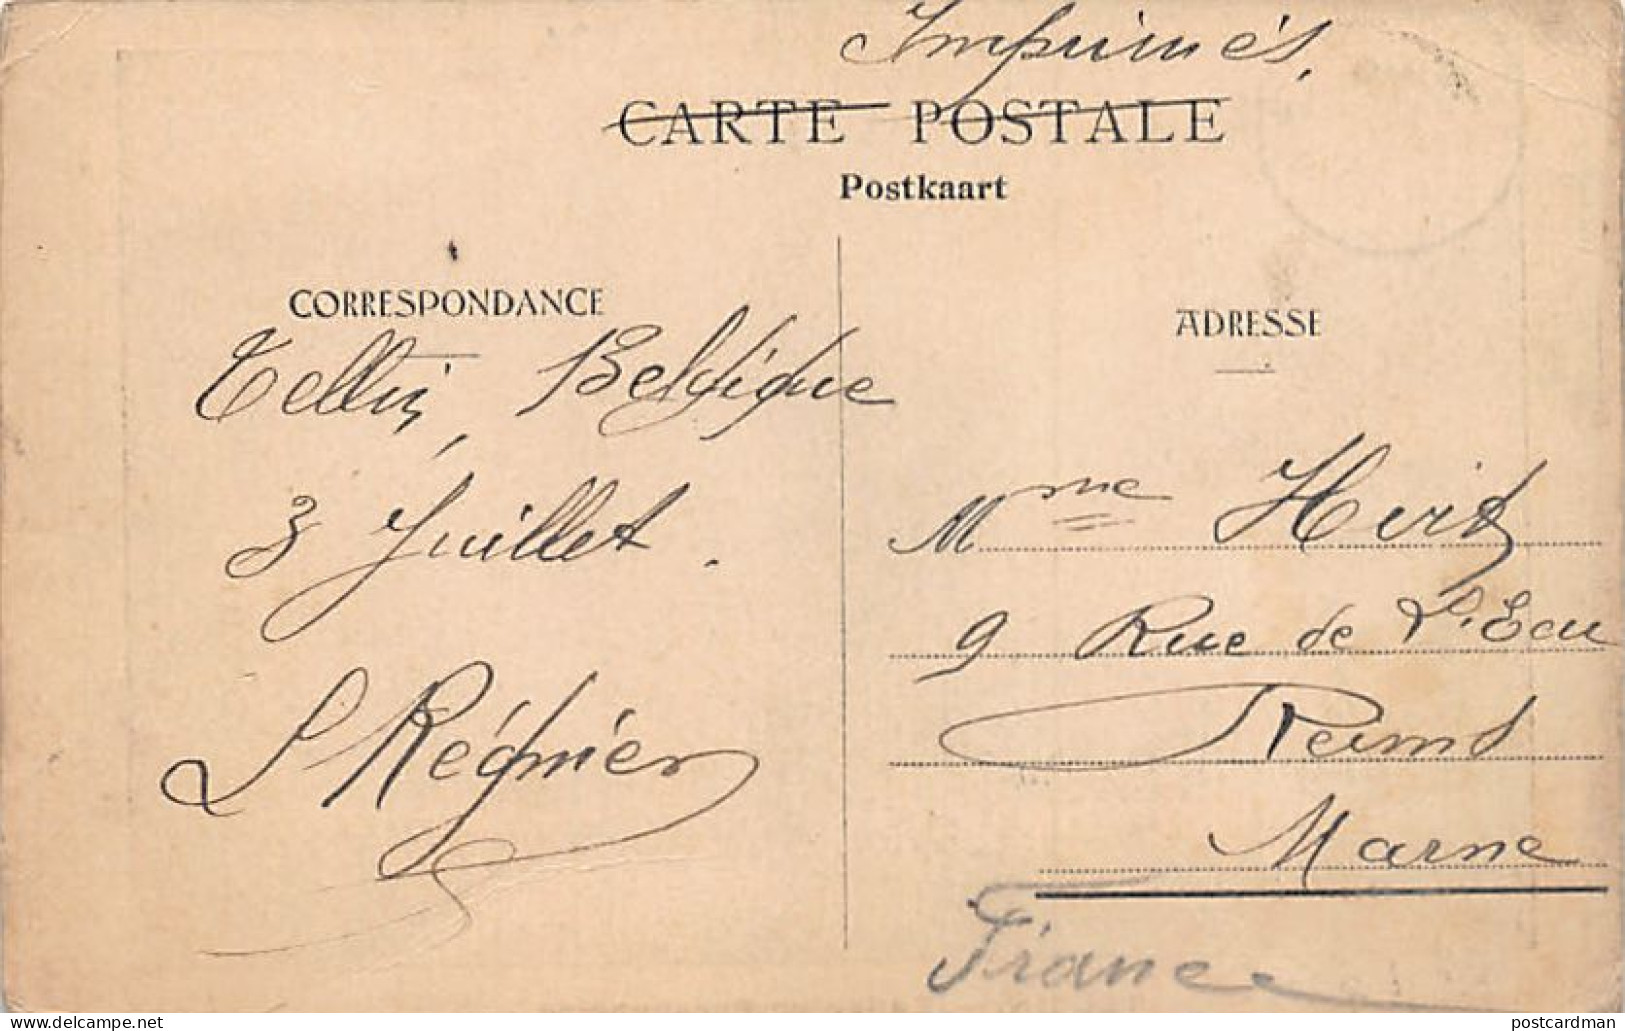 Imprimés.
CARTE POSTALE
Postkaart
CORRESPONDANCE
Tellin, Belgique
3 Juillet.
L Régnier
ADRESSE
Mme
9 Rue de L'Eau
Reims
Marne
France
www.delcampe.net
postcardman